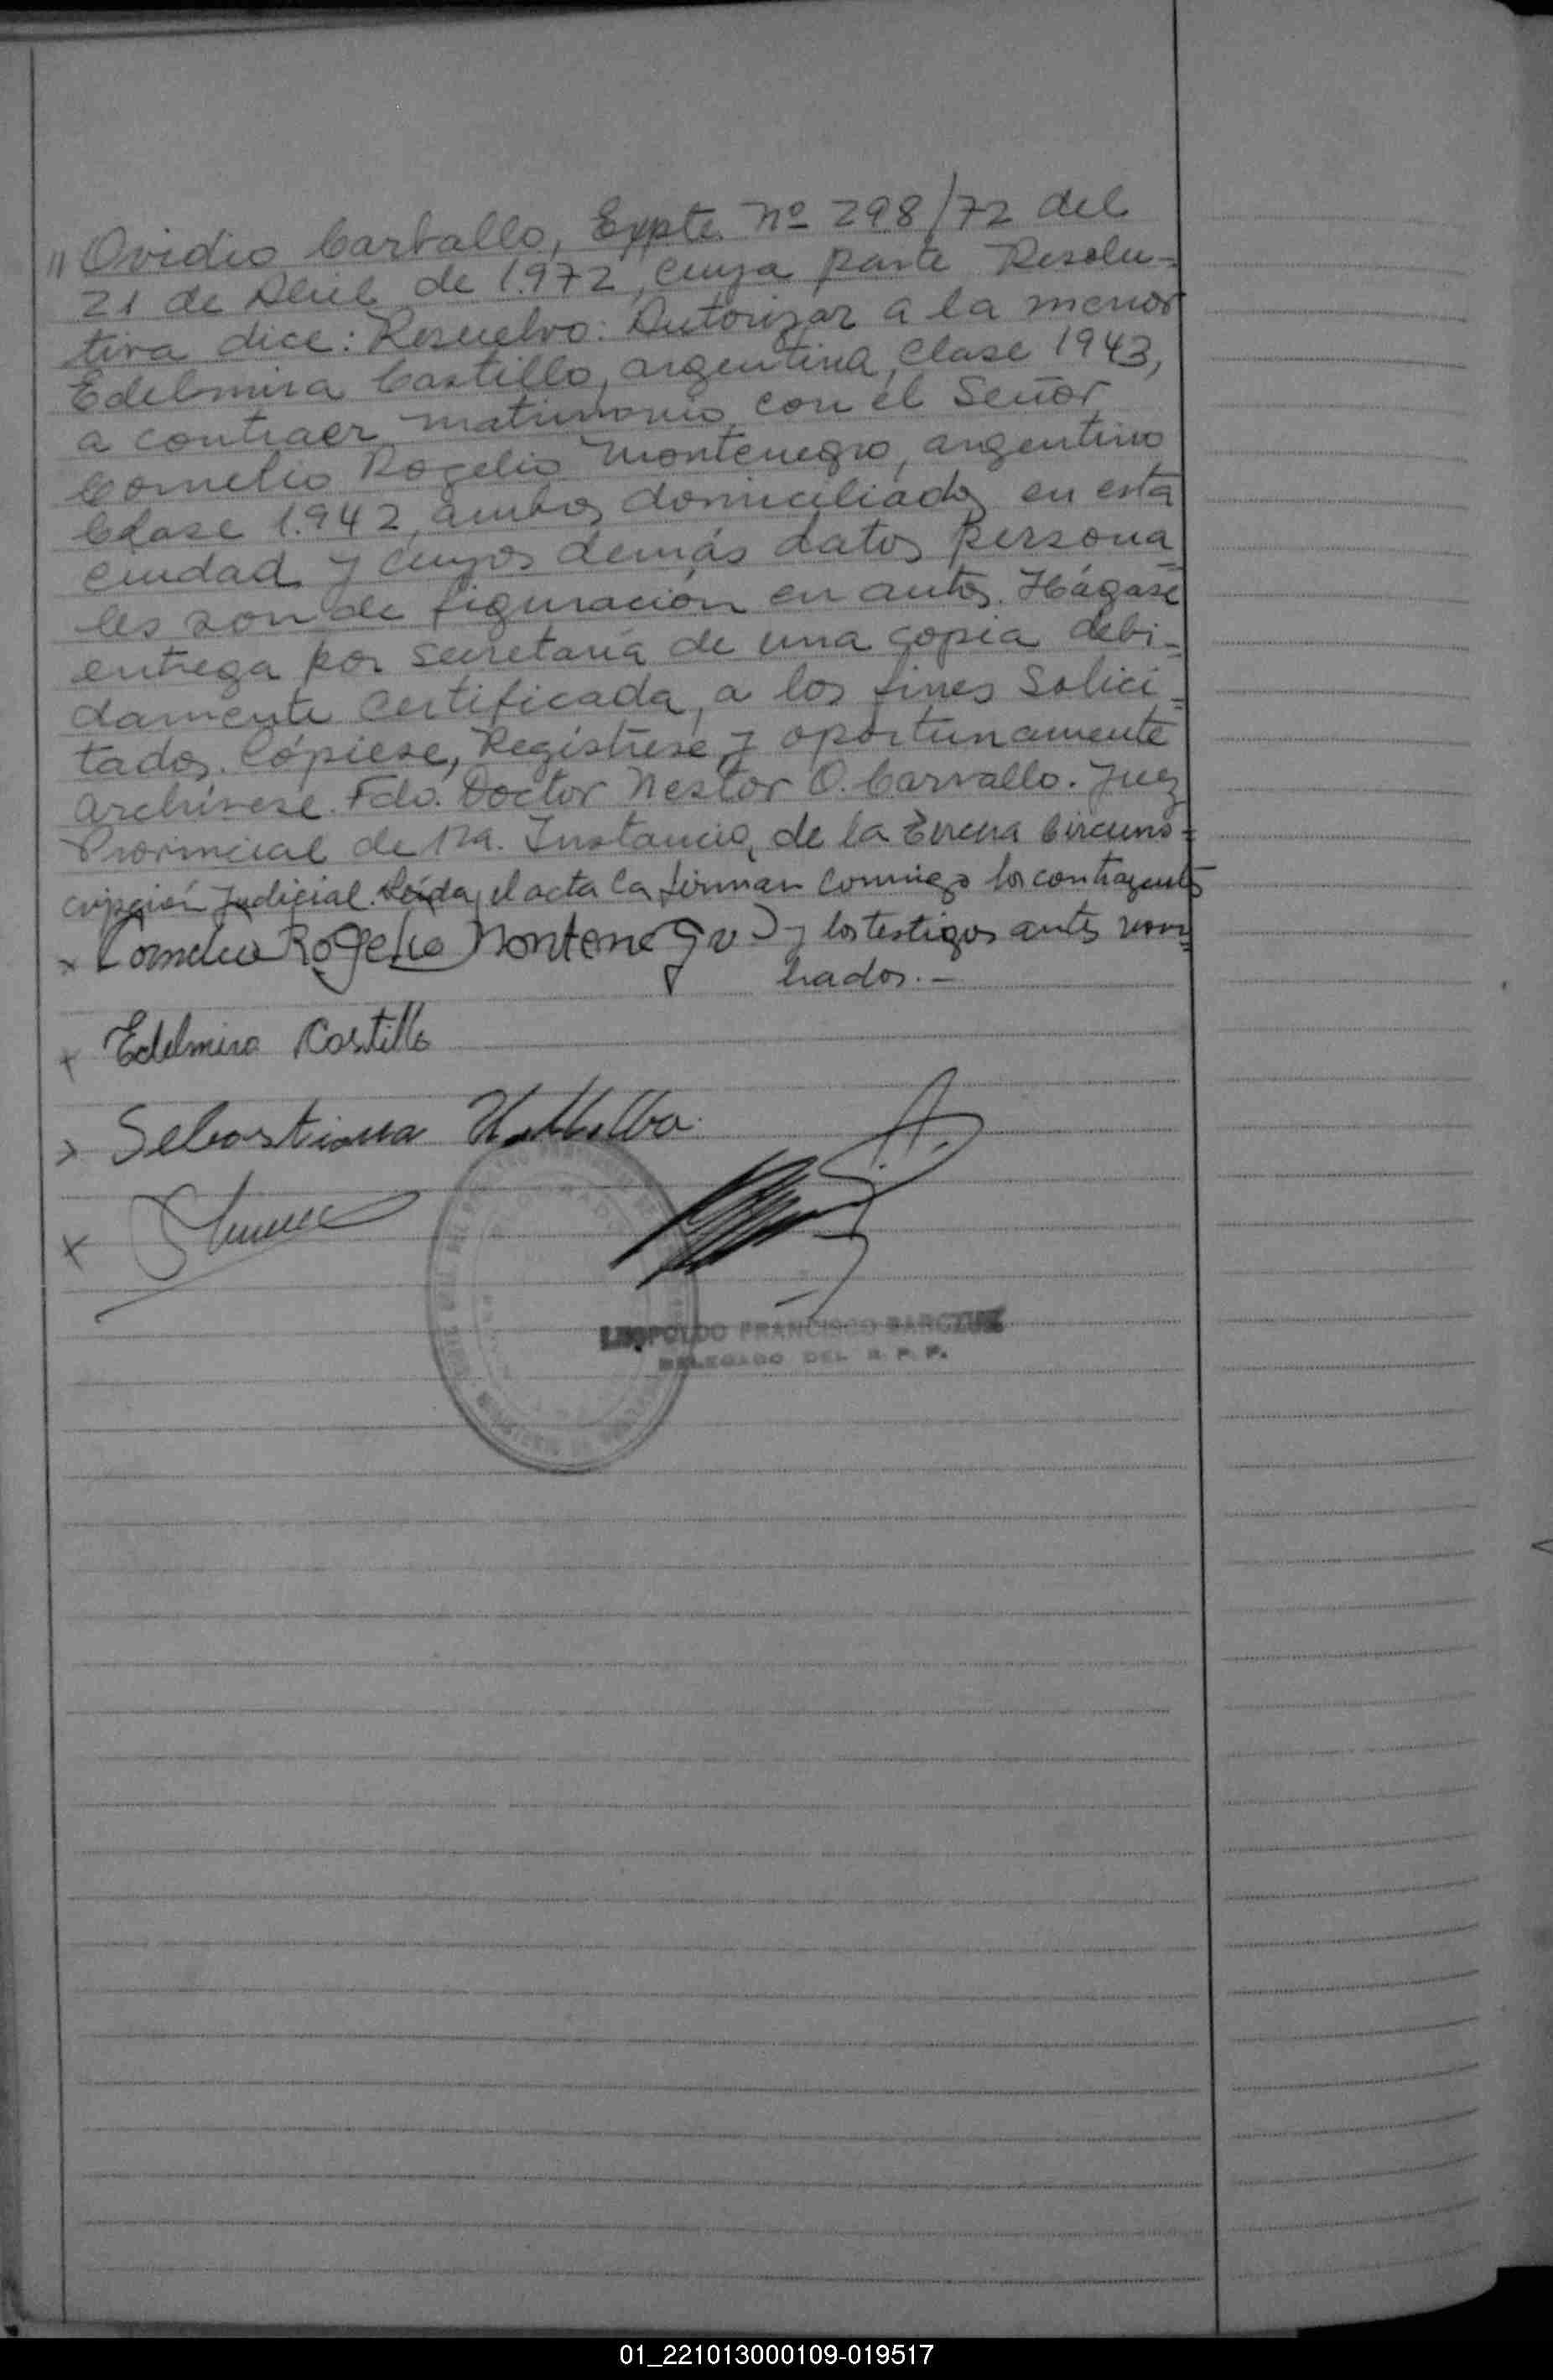 " Ovidio Carballo, Expte Nº 298/72 del
21 de Abril de 1.972, cuya parte Resolu-
tiva dice: Resuelvo: Autorizar a la menor
Edelmira Castillo, argentina, Clase 1943,
a contraer matrimonio con el Señor
Cornelio Rogelio Montenegro, argentino
Clase 1.942, ambos domiciliados en esta
ciudad y cuyos demás datos persona
les son de figuración en autos. Hágase
entrega por secretaría de una copia debi-
damente certificada, a los fines Solici-
tados. Cópiese, Regístrese y oportunamente
archívese. Fdo. Doctor Nestor O. Carvallo. Juez
Provincial de 1ra. Instancia, de la Tercera Circuns-
cripción Judicial. Leída el acta la firman conmigo los contrayentes
x Cornelio Rogelio Montenegro y los testigos antes nom
brados.-
x Edelmira Castillo
x Sebastiana
x
LEOPOLDO FRANCISCO
DELEGADO DEL R. P. P.
01_221013000109-019517